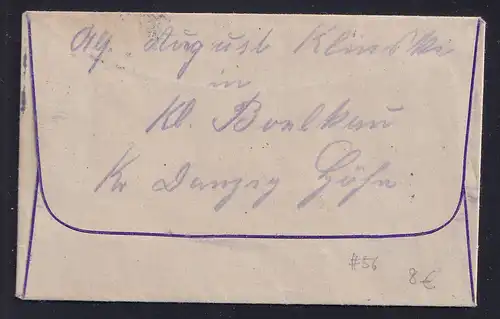 August Klinski
in
Kl. Boelkau
Kr Danzig Höhe
#56
8€